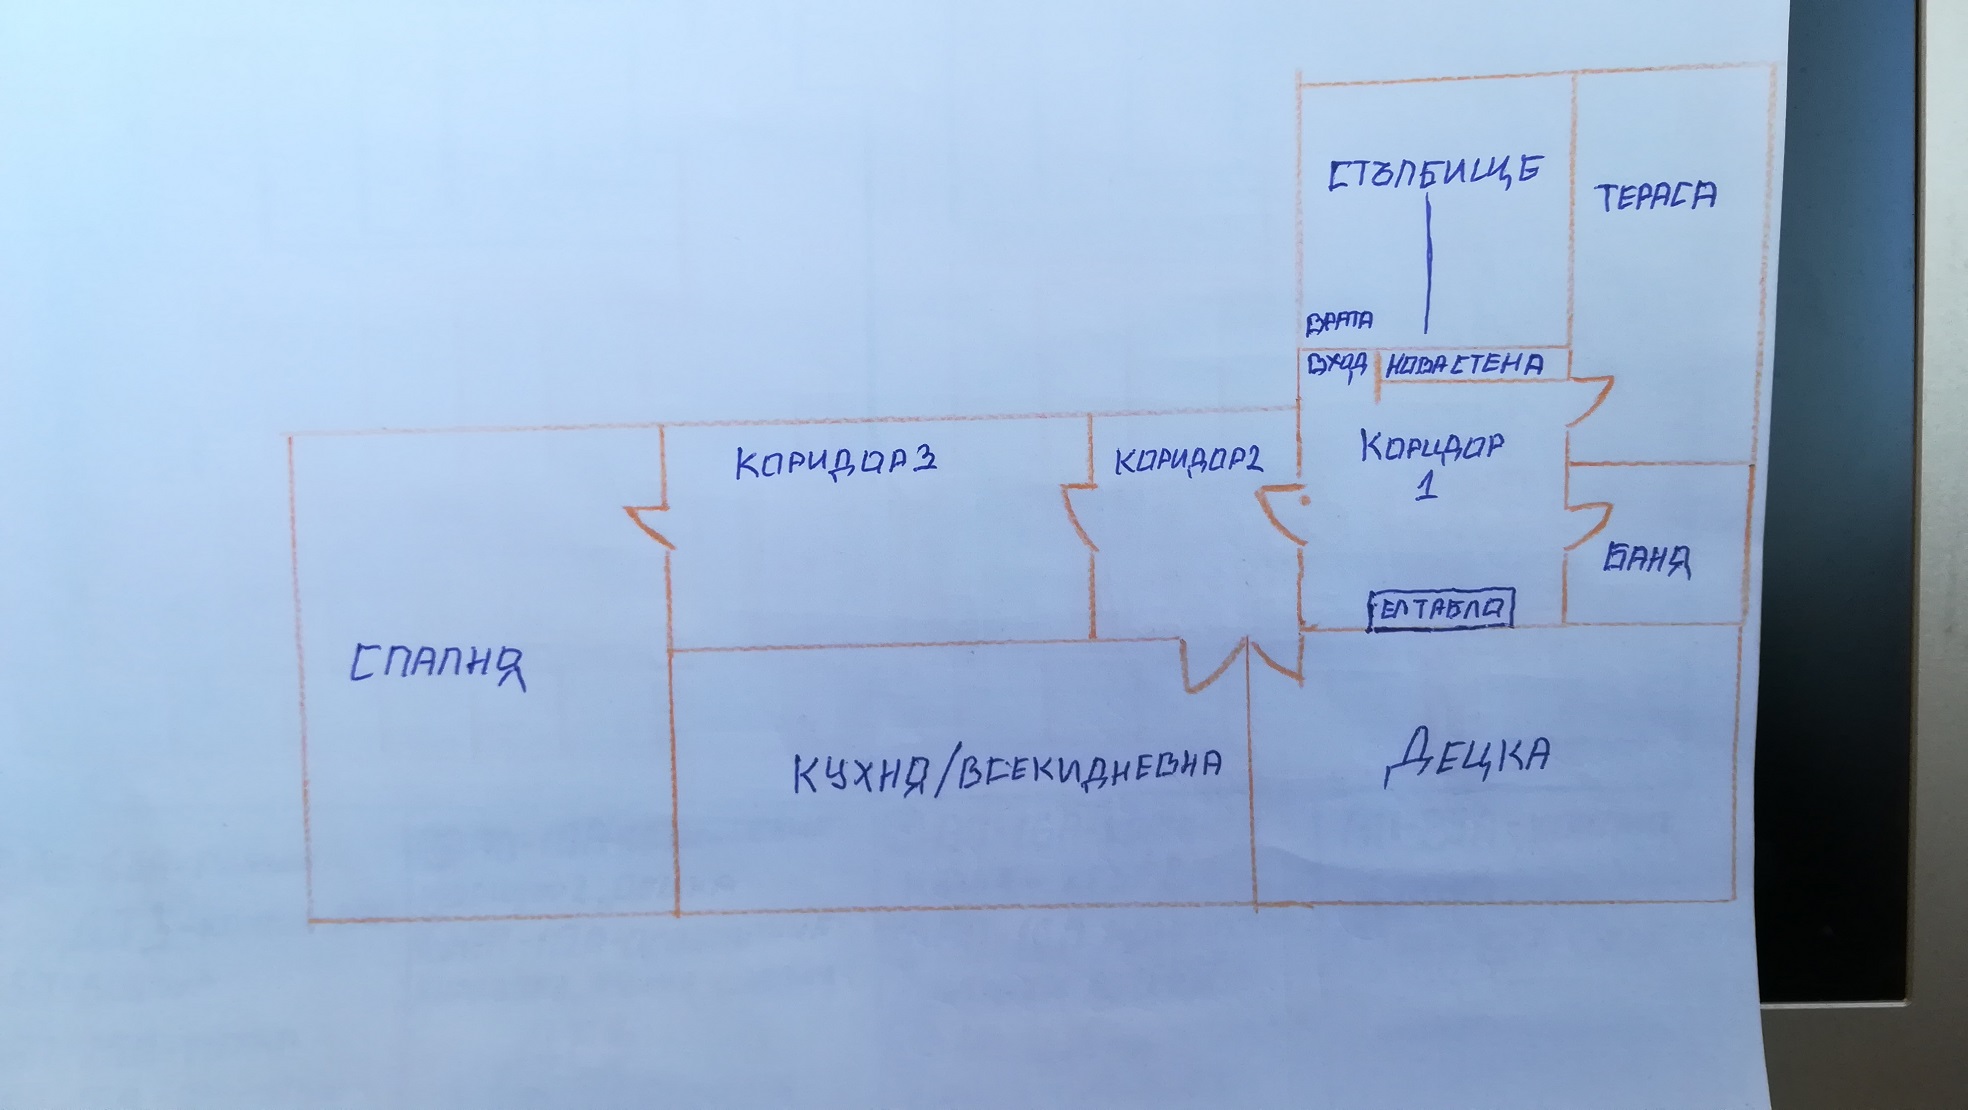 СТЪЛБИЩЕ
ТЕРАСА
ВРАТА
ВХОД
НОВА СТЕНА
КОРИДОР 3
КОРИДОР 2
КОРИДОР
1
БАНЯ
ЕЛ ТАБЛО
СПАЛНЯ
КУХНЯ/ВСЕКИДНЕВНА
ДЕЦКА